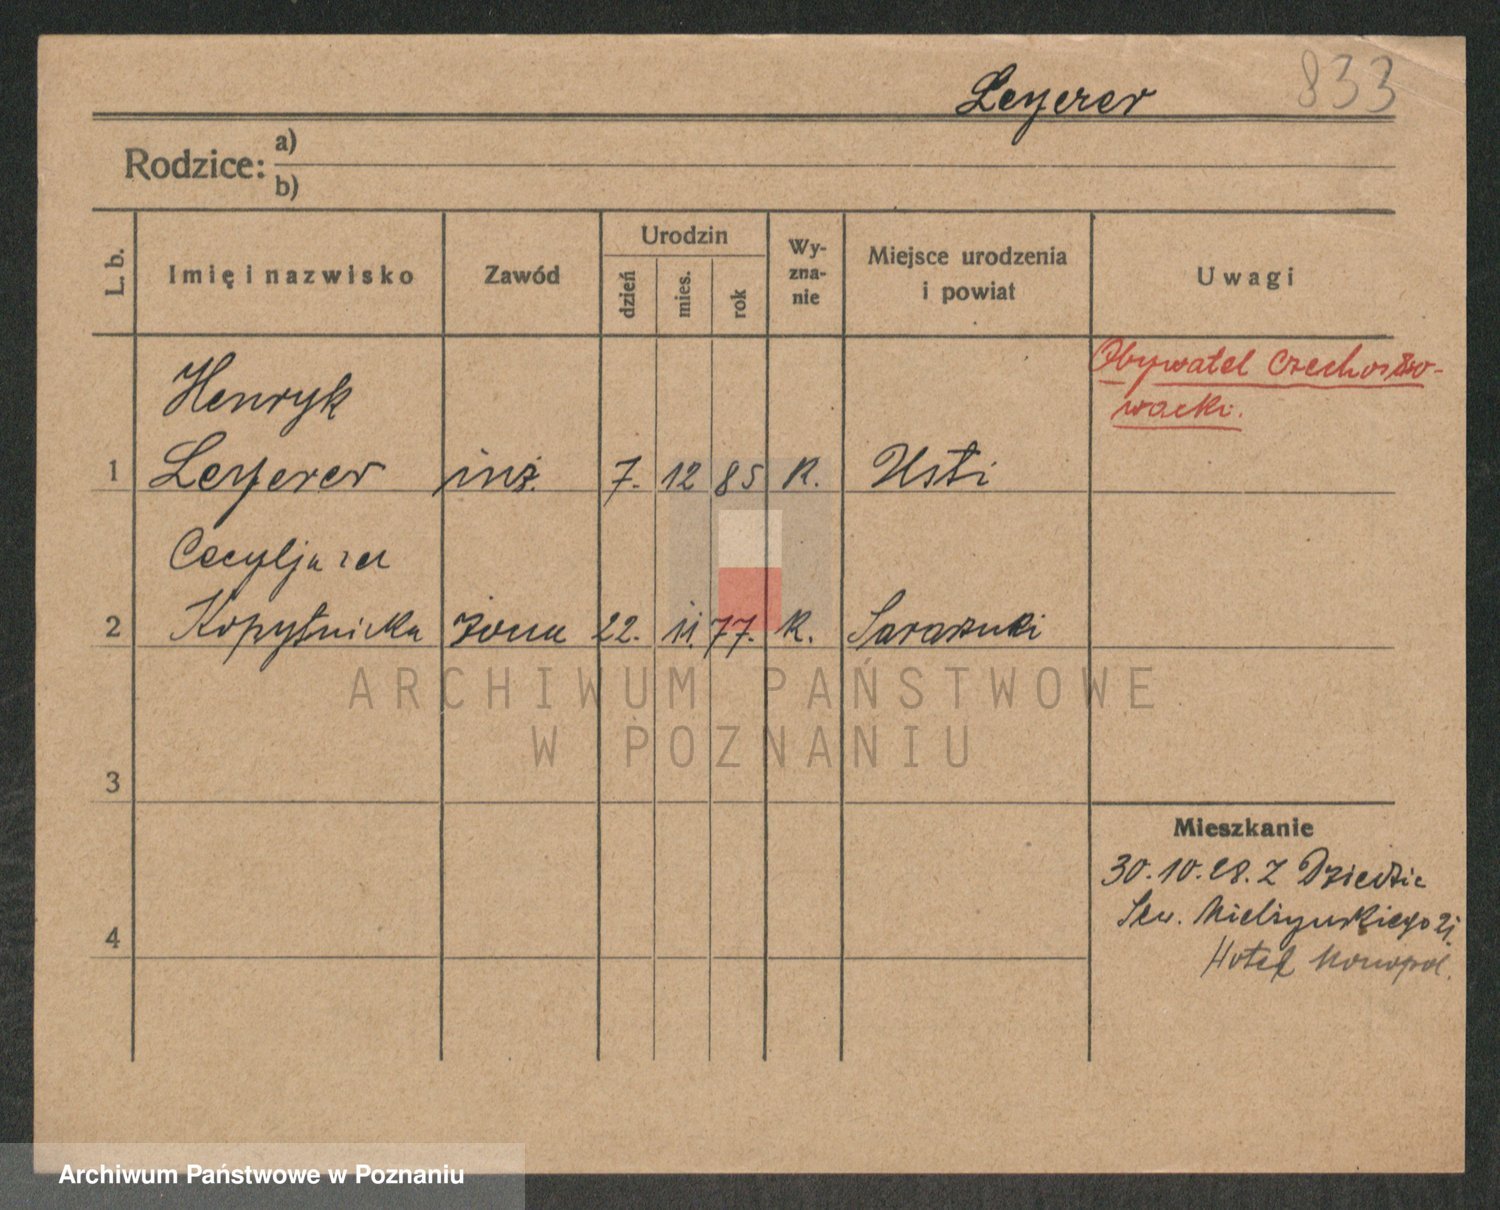 833
Leyerer
Rodzice: a)
b)
L. b. Imię i nazwisko Zawód Urodzin dzień mies. rok Wy-zna-nie Miejsce urodzenia i powiat Uwagi
Obywatel Czechosło-
wacki.
Henryk
1 Leyerer inż. 7. 12 85 R. Usti
Cecylja za
2 Kopytnicka żona 22. 11. 77. R.
ARCHIWUM PAŃSTWOWE
W POZNANIU
3
Mieszkanie
30.10.28. Z Dziedzic
Sew. Mielżyńskiego 21.
Hotel Monopol.
4
Archiwum Państwowe w Poznaniu